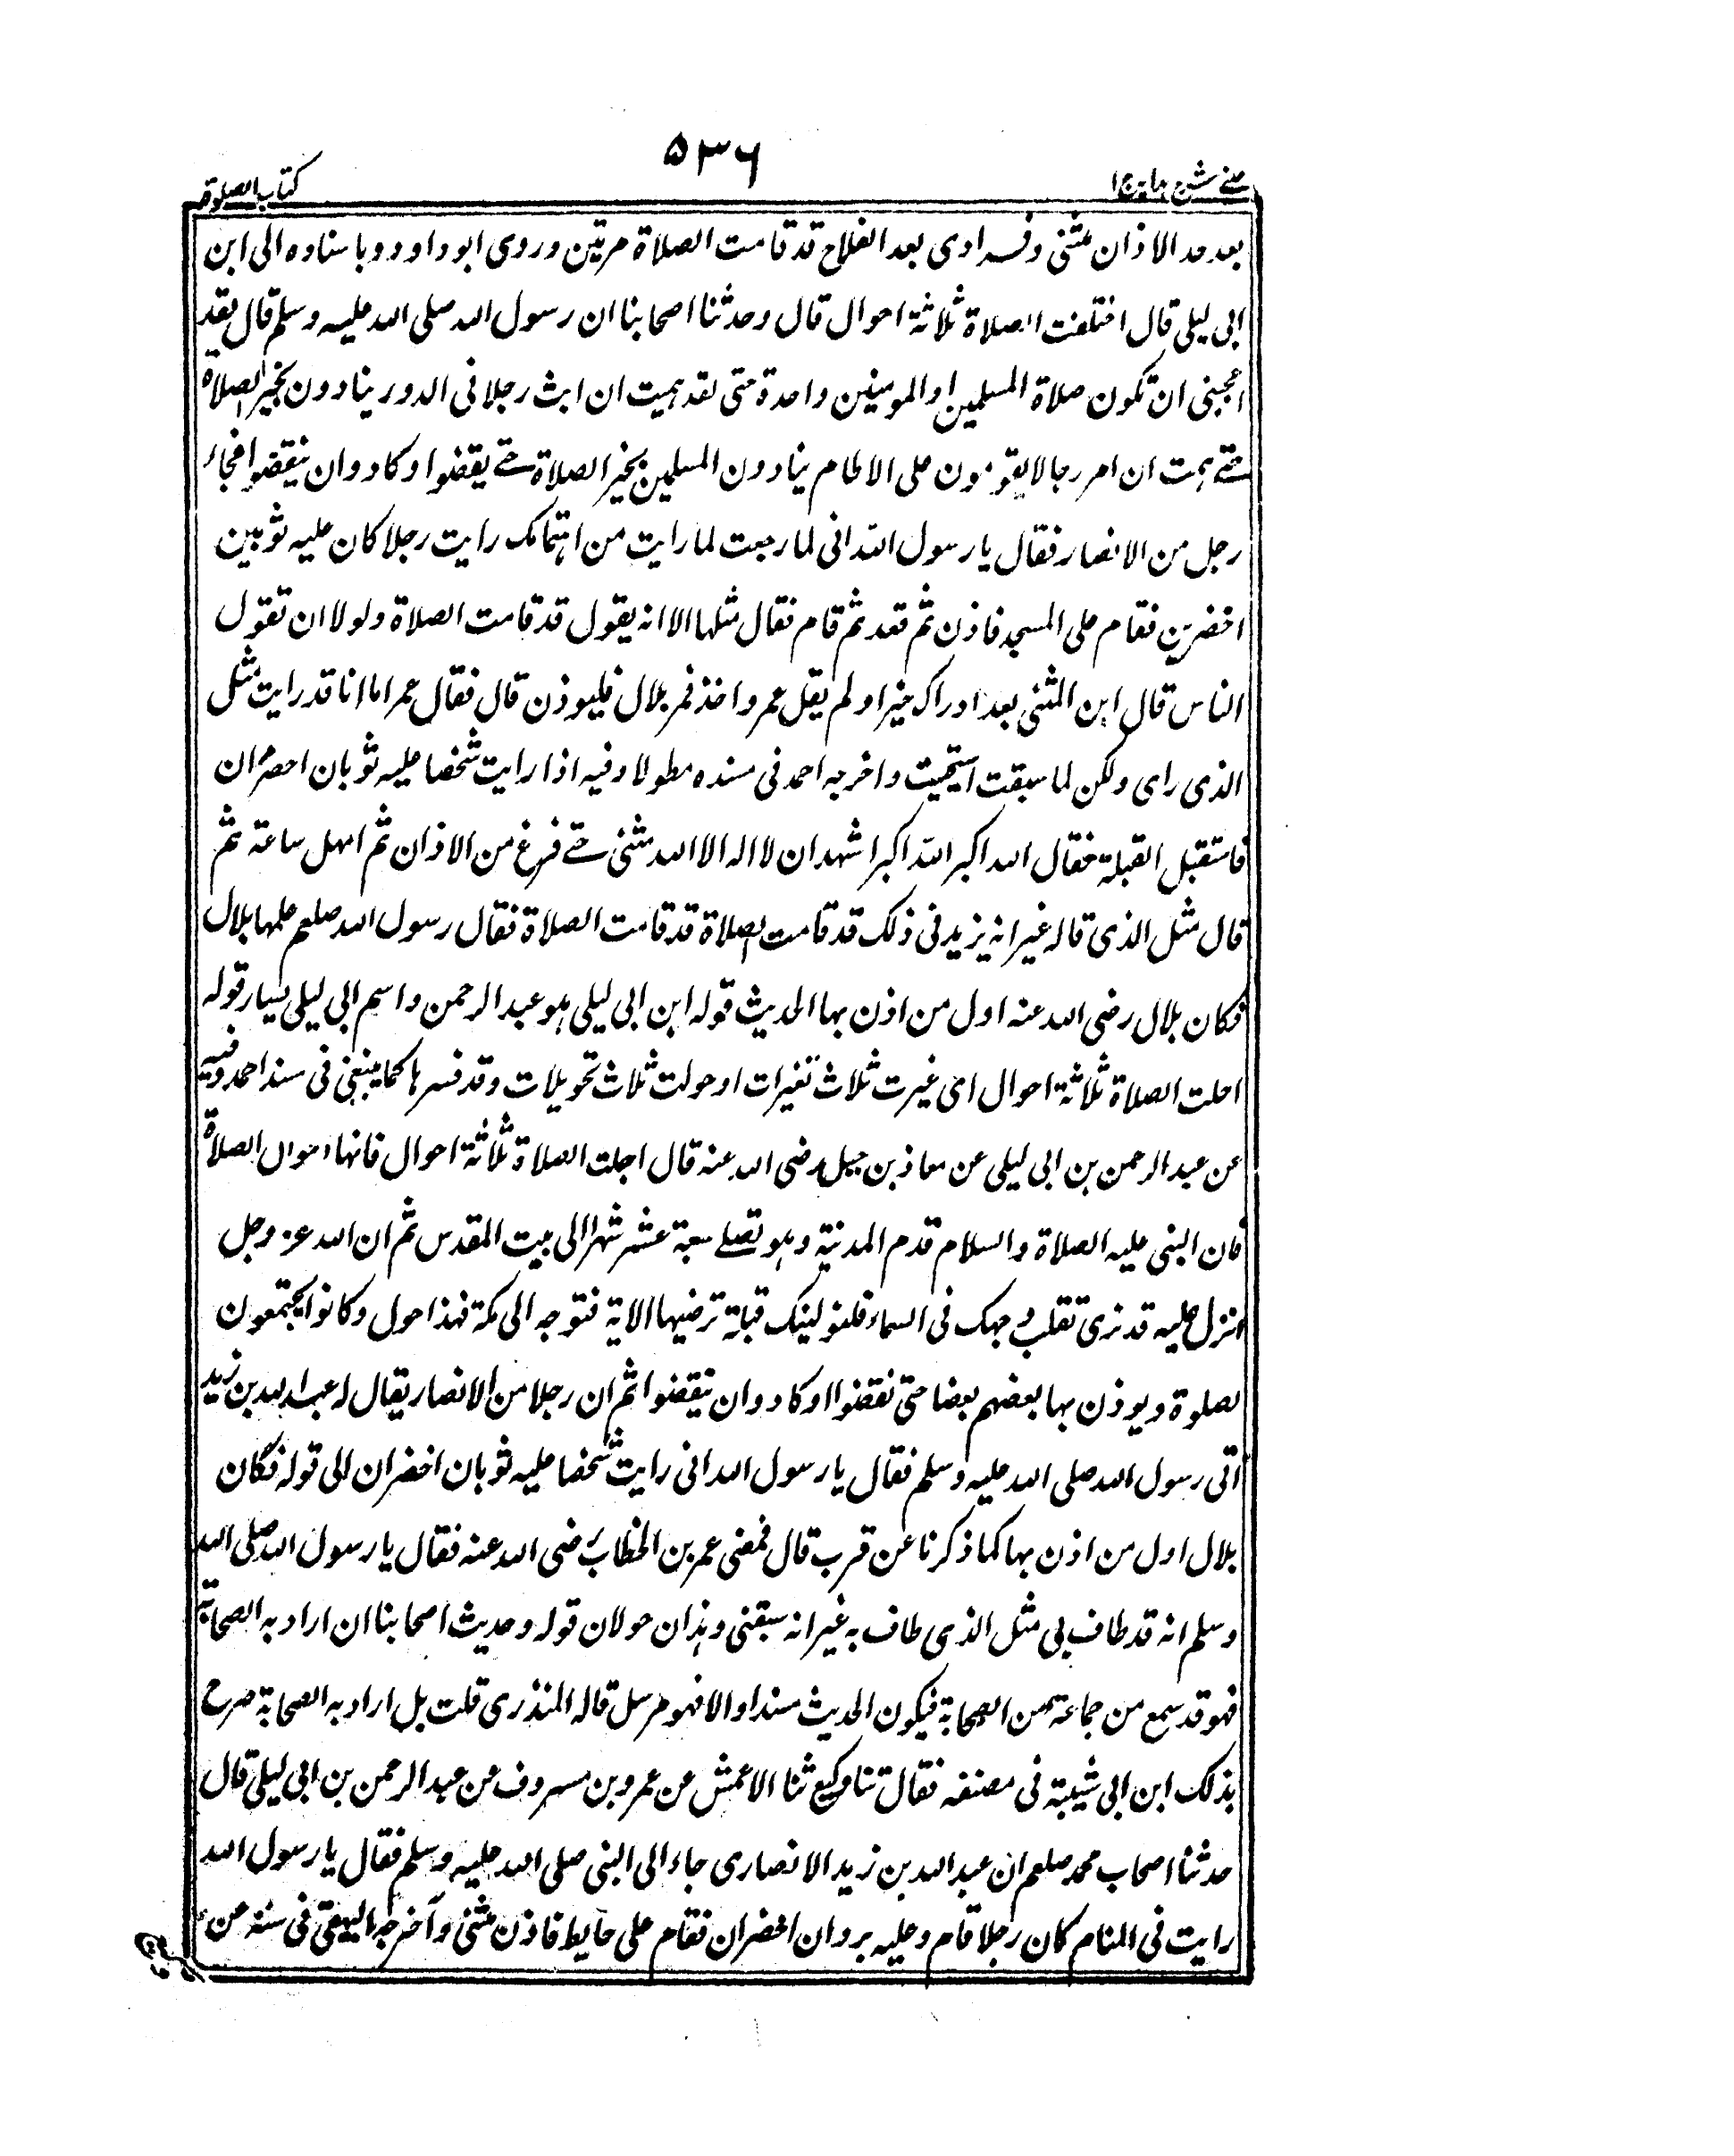 ۵۳۶
عينے شرح ہدایہ ج ۱
كتاب الصلوة
بعد عد الاذان مثنى وفرادى بعد الفلاح قد قامت الصلاة مرتين وروى ابو داود وباسناده الى ابن
ابى ليلى قال اختلفت الصلاة ثلاثة احوال قال وحدثنا اصحابنا ان رسول الله صلى الله عليه وسلم قال لقد
اعجبنى ان تكون صلاة المسلمين او المومنين واحدة حتى لقد هميت ان ابث رجلا فى الدور ينادون بخير الصلاة
حتے ہمت ان امر رجالا يقومون على الاطام ينادون المسلمين بخير الصلاة حتے يقضوا وكادوان ينقضوا فجاء
رجل من الانصار فقال يا رسول الله انى لما رجعت لما رايت من اہتمامك رايت رجلا كان عليه ثوبين
اخضرين فقام على المسجد فاذن ثم قعد ثم قام فقال مثلها الا انه يقول قد قامت الصلاة ولولا ان تقول
الناس قال ابن المثنى بعد ادراك خيرا ولم يقل عمر واخذ فمر بلال فليوذن قال فقال عمر اما انا قد رايت مثل
الذى راى ولكن لما سبقت استحييت واخرجه احمد فى مسنده مطولا وفيه اذا رايت شخصا عليه ثوبان احضران
فاستقبل القبلة فقال الله اكبر الله اكبر اشهد ان لا اله الا الله مثنى حتے فرغ من الاذان ثم امهل ساعة ثم
قال مثل الذى قاله غير انه يزيد فى ذلك قد قامت الصلاة قد قامت الصلاة فقال رسول الله صلعم علمها بلال
فكان بلال رضى الله عنه اول من اذن بها الحديث قوله ابن ابى ليلى ہو عبد الرحمن واسم ابى ليلى يسار قوله
احلت الصلاة ثلاثة احوال اى غيرت ثلاث تغيرات او حولت ثلاث تحويلات وقد فسرها كما ينبغى فى مسند احمد وفيه
عن عبد الرحمن بن ابى ليلى عن معاذ بن جبل رضى الله عنه قال احلت الصلاة ثلاثة احوال فانها احوال الصلاة
فان النبى عليه الصلاة والسلام قدم المدينة وہو تصلے سبعة عشر شهرا الى بيت المقدس ثم ان الله عز وجل
انزل عليه قد نرى تقلب وجهك فى السماء فلنولينك قبلة ترضيها الاية فتوجه الى مكة فهذا حول وكانوا يجتمعون
لصلوة ويوذن بها بعضهم بعضا حتى نقضوا او كادوان ينقضوا ثم ان رجلا من الانصار يقال له عبد الله بن زيد
اتى رسول الله صلى الله عليه وسلم فقال يا رسول الله انى رايت شخصا عليه ثوبان اخضران الى قوله فكان
بلال اول من اذن بها كما ذكرنا عن قرب قال فمضى عمر بن الخطاب رضى الله عنه فقال يا رسول الله صلى الله
وسلم انه قد طاف بى مثل الذى طاف به غير انه سبقنى وہذان حولان قوله وحديث اصحابنا ان اراد به الصحابة
فهو قد سمع من جماعة من الصحابة فيكون الحديث مسندا والا فهو مرسل قاله المنذرى قلت بل اراد به الصحابة صرح
بذلك ابن ابى شيبة فى مصنفه فقال ثنا وكيع ثنا الاعمش عن عمرو بن مسروف عن عبد الرحمن بن ابى ليلى قال
حدثنا اصحاب محمد صلعم ان عبد الله بن زيد الانصارى جاء الى النبى صلى الله عليه وسلم فقال يا رسول الله
رايت فى المنام كان رجلا قام وعليه بردان اخضران فقام على حايط فاذن مثنى وآخرجه البيهقى فى سننه عن